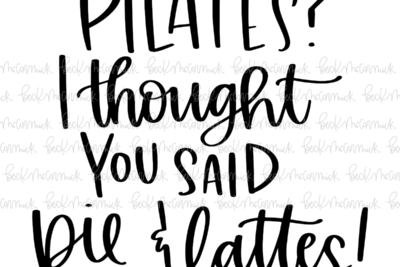 PILATES?
I thought
YOU SAID
pie & lattes!